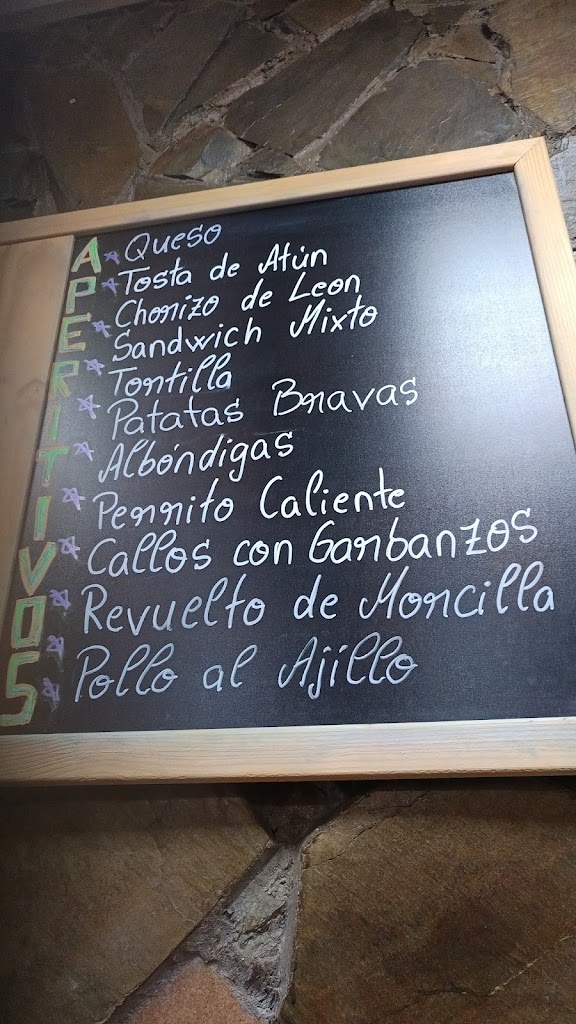 APERITIVOS
Queso
Tosta de Atún
Chorizo de Leon
Sandwich Mixto
Tortilla
Patatas Bravas
Albóndigas
Perrito Caliente
Callos con Garbanzos
Revuelto de Morcilla
Pollo al Ajillo